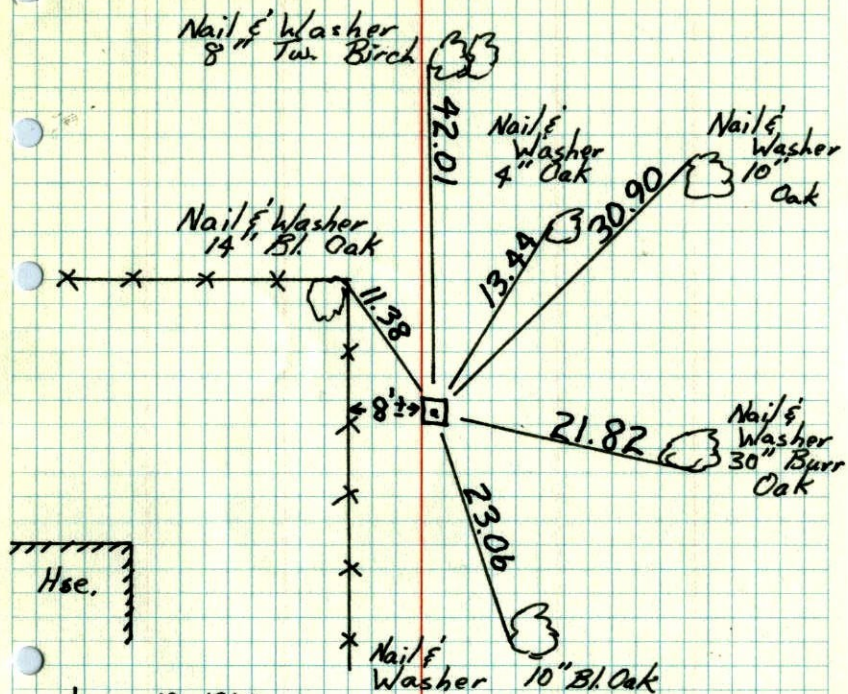 Nail & Washer
8" Tw. Birch
42.01
Nail &
Washer
4" Oak
Nail &
Washer
10"
Oak
30.90
13.44
Nail & Washer
14" Bl. Oak
11.38
8'±
21.82
Nail &
Washer
30" Burr
Oak
23.06
Hse.
Nail &
Washer 10" Bl. Oak